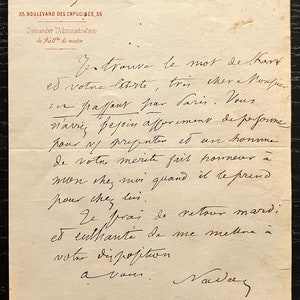 35, BOULEVARD DES CAPUCINES, 35
Demander l'Administrateur
de 9 à 11 h. du matin
Je trouve le mot de Karr
et votre lettre, très cher Monsieur
en passant par Paris. Vous
n'aviez besoin assurément de personne
pour vous présenter et un homme
de votre mérite fait honneur à
mon chez moi quand il le prend
pour chez lui.
Je serai de retour mardi
et enchanté de me mettre à
votre disposition
à vous.
Nadar